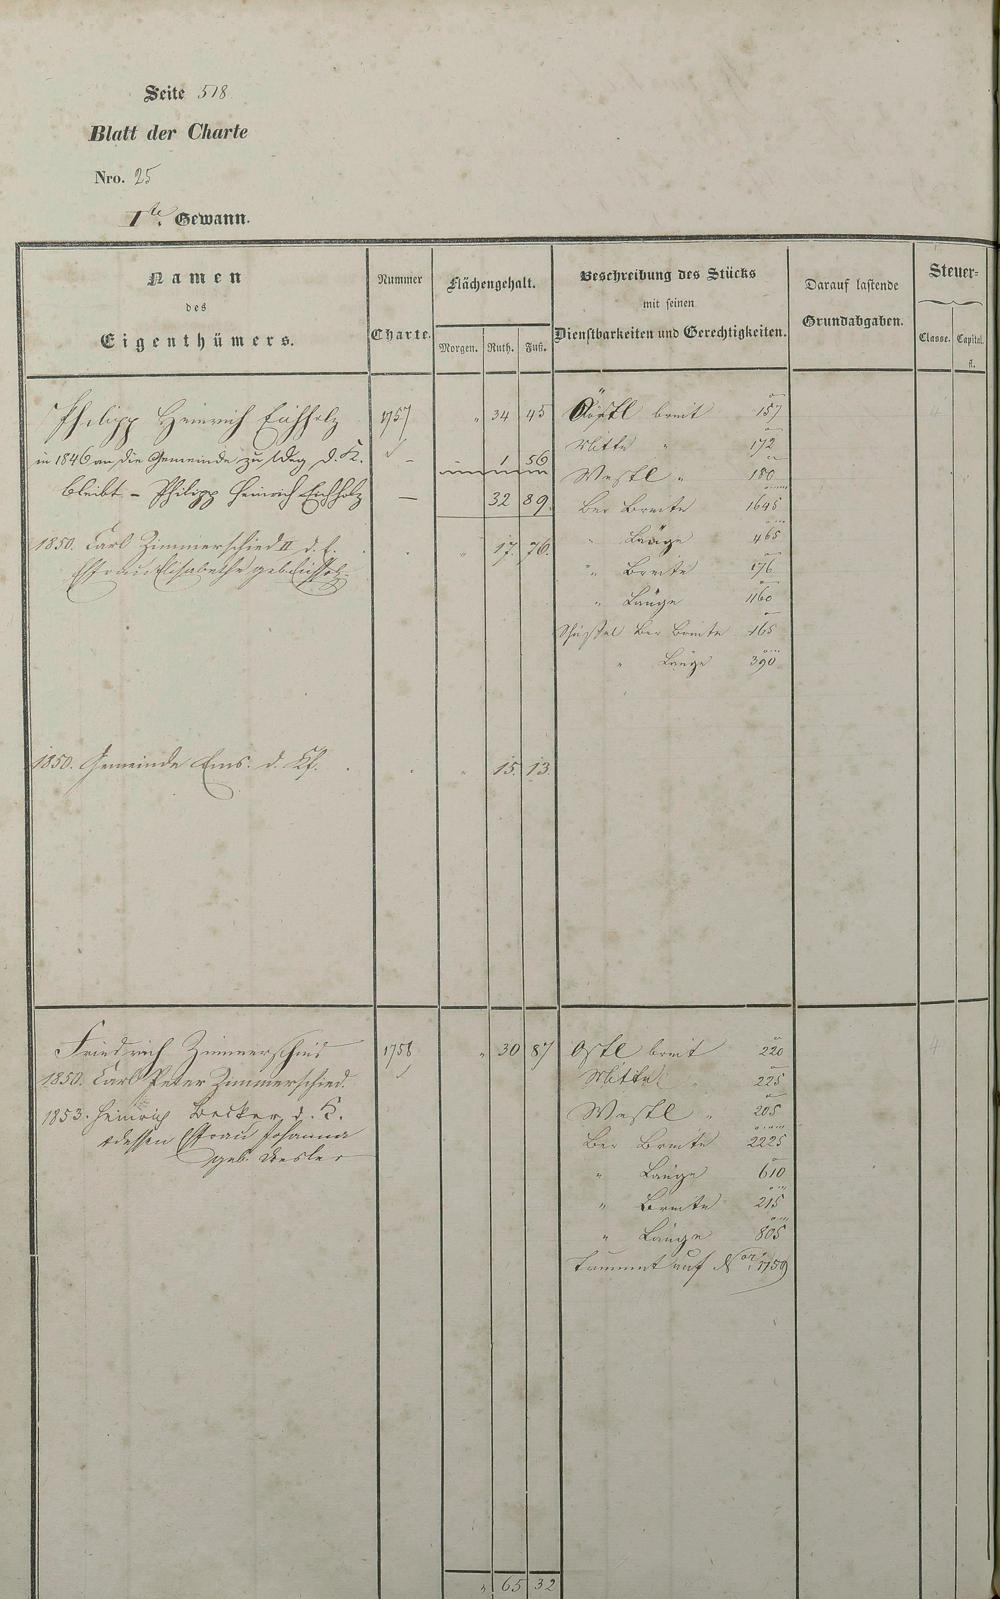 Seite 518
Blatt der Charte
Nro. 25
1te. Gewann.
Namen
des
Eigenthümers.
Nummer
Charte.
Flächengehalt.
Morgen. Ruth. Fuß.
Beschreibung des Stücks
mit seinen
Dienstbarkeiten und Gerechtigkeiten.
Darauf lastende
Grundabgaben.
Steuer-
Classe. Capital.
fl.
Philipp Heinrich Eichholz 1757 " 34 45 Östl breit 157
in 1846 an die Gemeinde zu Weg d. K. — 1 56 Mitte " 172
bleibt – Philipp Heinrich Eichholz — 32 89. Westl " 180
Ber Breite 1695
1850. Carl Zimmerschied II d. E. " 17. 76. " Länge 465
Efrau Elisabethe geb. " Breite 176
" Länge 1160
Ber Breite 165
" Länge 390
1850. Gemeinde Ems. d. Kf. " 15. 13.
Friedrich Zimmerschied 1758 " 30 87 Östl breit 220
1850. Carl Peter Zimmerschied. Mittel " 225
1853. Heinrich Becker d. K. Westl " 205
dessen Efrau Johanna Ber Breite 2225
geb. " Länge 610
" Breite 215
" Länge 805
kommt auf Nro. 1759
" 65 32